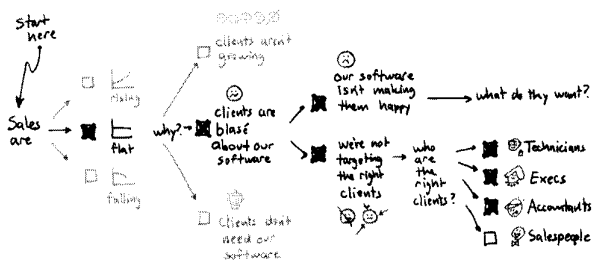 Start
here
Sales
are
rising
flat
falling
why?
clients aren't
growing
clients are
blasé
about our
software
clients don't
need our
software
our software
isn't making
them happy
what do they want?
we're not
targeting
the right
clients
who
are
the
right
clients?
Technicians
Execs
Accountants
Salespeople